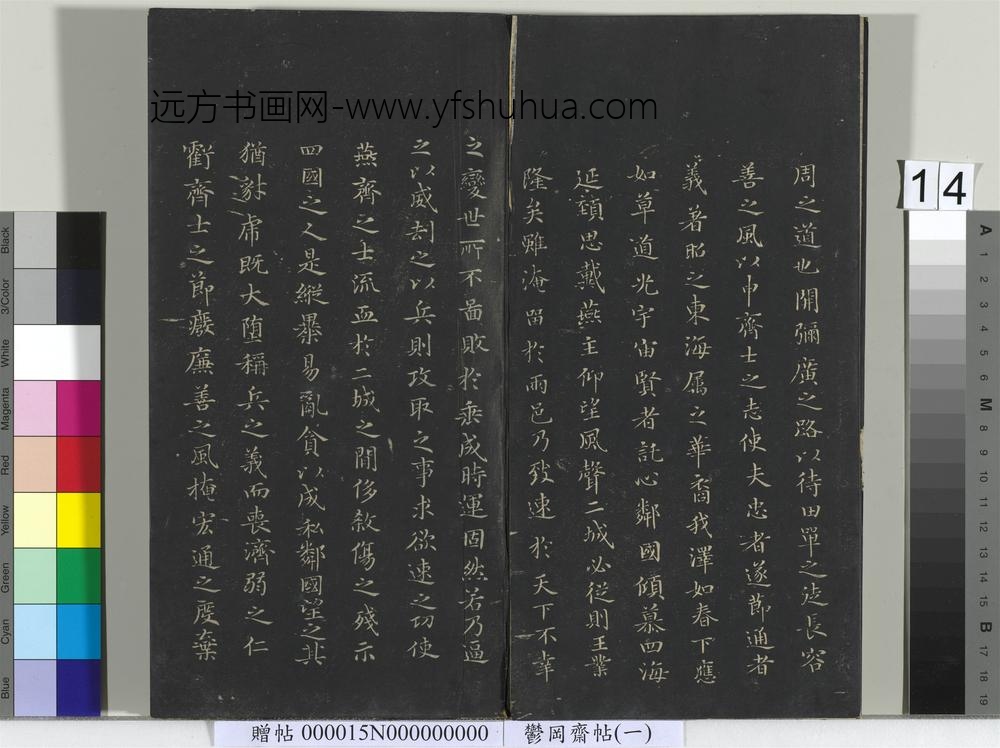 远方书画网-www.yfshuhua.com
周之道也開彌廣之路以待田單之徒長容
善之風以申齊士之志使夫忠者遂節通者
義著昭之東海屬之華裔我澤如春下應
如草道光宇宙賢者託心鄰國傾慕四海
延頸思戴燕主仰望風聲二城必從則王業
隆矣雖淹留於兩邑乃致速於天下不幸
之變世所不圖敗於垂成時運固然若乃逼
之以威劫之以兵則攻取之事求欲速之功使
燕齊之士流血於二城之間侈殺傷之殘示
四國之人是縱暴易亂貪以成私鄰國望之其
猶豺虎既大堕稱兵之義而喪濟弱之仁
虧齊士之節廢廉善之風掩宏通之度棄
14
Black
3/Color
White
Magenta
Red
Yellow
Green
Cyan
Blue
A
1
2
3
4
5
6
M
8
9
10
11
12
13
14
15
B
17
18
19
贈帖 000015N000000000
鬱岡齋帖(一)